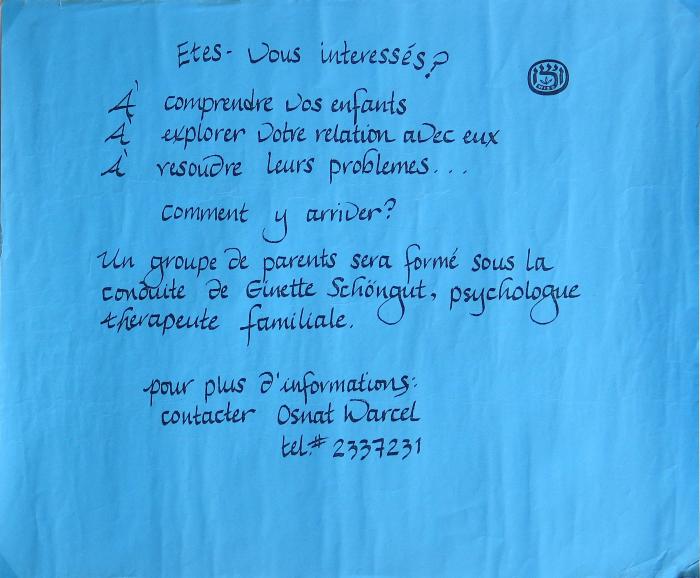 Etes-Vous interessés?
À comprendre vos enfants
À explorer votre relation avec eux
À resoudre leurs problemes...
Comment y arriver?
Un groupe de parents sera formé sous la
conduite de Ginette Schöngut, psychologue
therapeute familiale.
pour plus d'informations:
contacter Osnat Warcel
tel.# 2337231